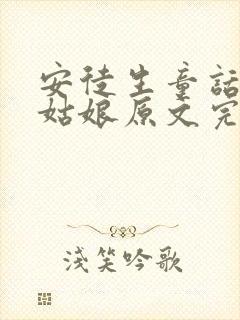 安徒生童話
姑娘原文完
淺笑吟歌